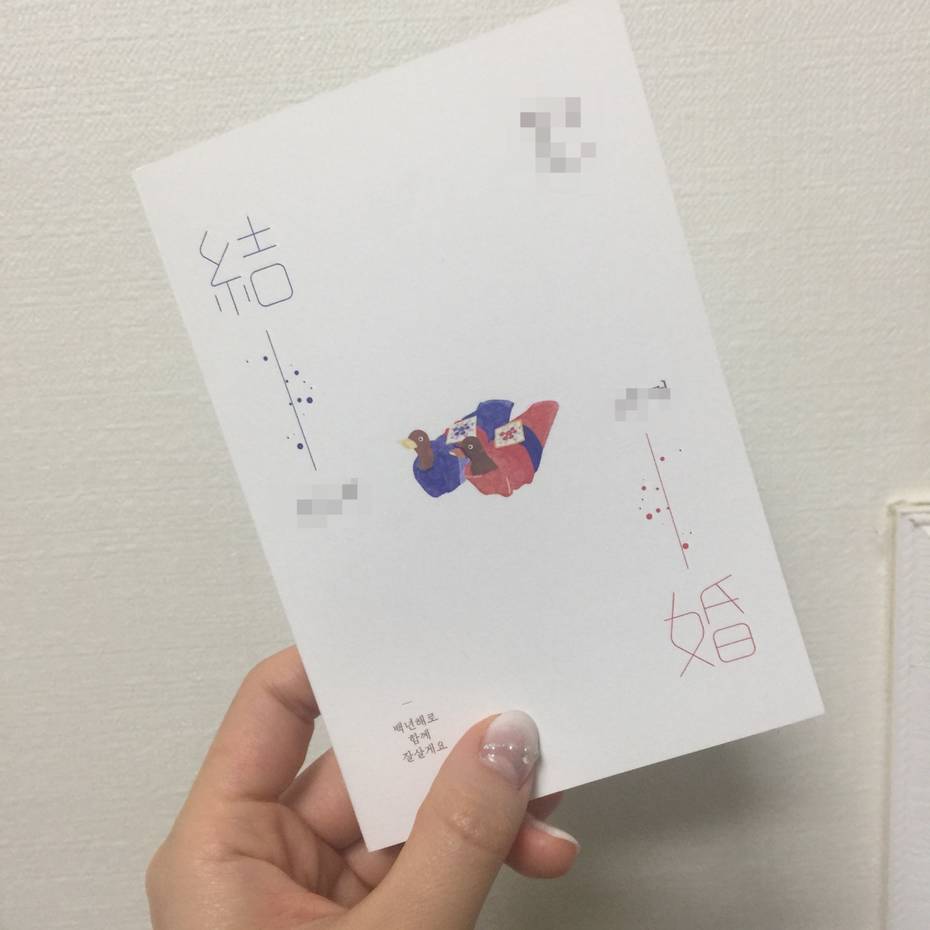 結
婚
백년해로
함께
잘살게요